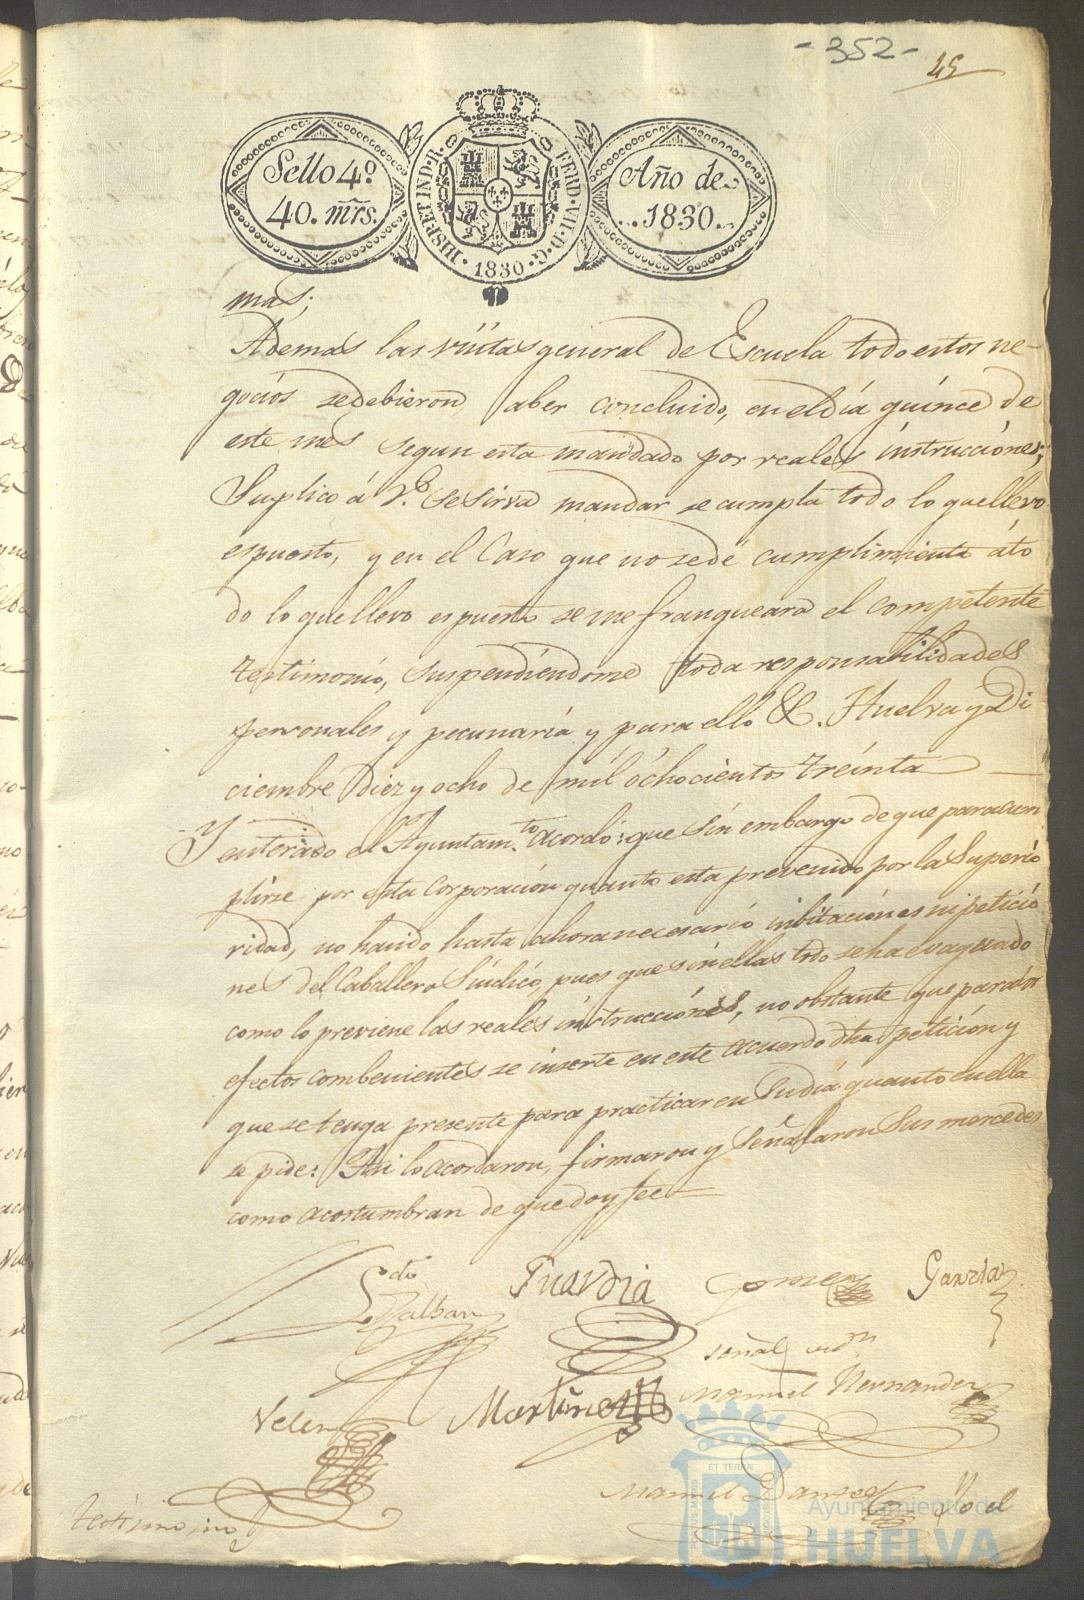 - 352 -
45
Sello 4º
40. mrs.
HISP.ET IND.R. FERD.VII.D.G.
1830
Año de
1830
mas;
Ademas las visitas general de Escuela todo estos ne-
gocios se debieron aber concluido, en el día quince de
este mes segun esta mandado por reales instrucciónes;
Suplico á V.S. se sirva mandar se cumpla todo lo que llevo
espuesto, y en el Caso que no se dé cumplimiento á to
do lo que llevo espuesto se me franqueara el competente
testimonio, suspendiéndome toda responsabilidades
personales y pecunaria y para ello &. Huelva y Di
ciembre Diez y ocho de mil ochocientos treinta
Y enterado el Ayuntam.to acordó: que sin embargo de que para cum
plirse por esta Corporación quanto esta prevenido por la Superio
ridad, no haido hasta ahora necesario inbitaciónes ni peticio
nes del Caballero Síndico, pues que sin ellas todo se ha evaquado
como lo previene las reales instrucciónes, no obstante que para los
efectos combenientes se inserte en este acuerdo dha petición y
que se tenga presente para practicar en su día quanto en ella
se pide: Asi lo acordaron, firmaron y señalaron sus mercedes
como acostumbran de que doy fee
Guardia
Garzia
señal
Manuel Hernandez
Velez
Martinez
Manuel
testimonio
Ayuntamiento de
HUELVA